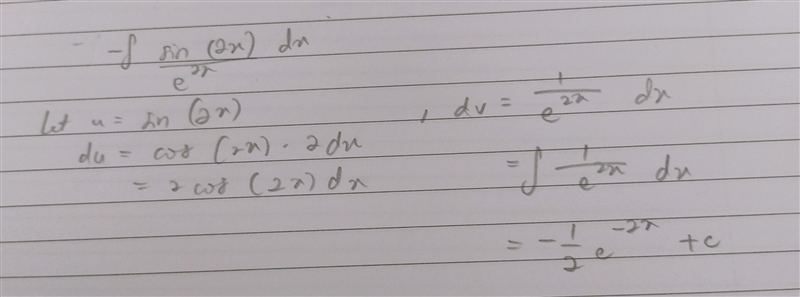 - -∫ sin (2x) / e^2x dx
let u = sin (2x) , dv = 1 / e^2x dx
du = cos (2x) · 2dx = ∫ 1 / e^2x dx
= 2 cos (2x) dx
= -1/2 e^-2x + c